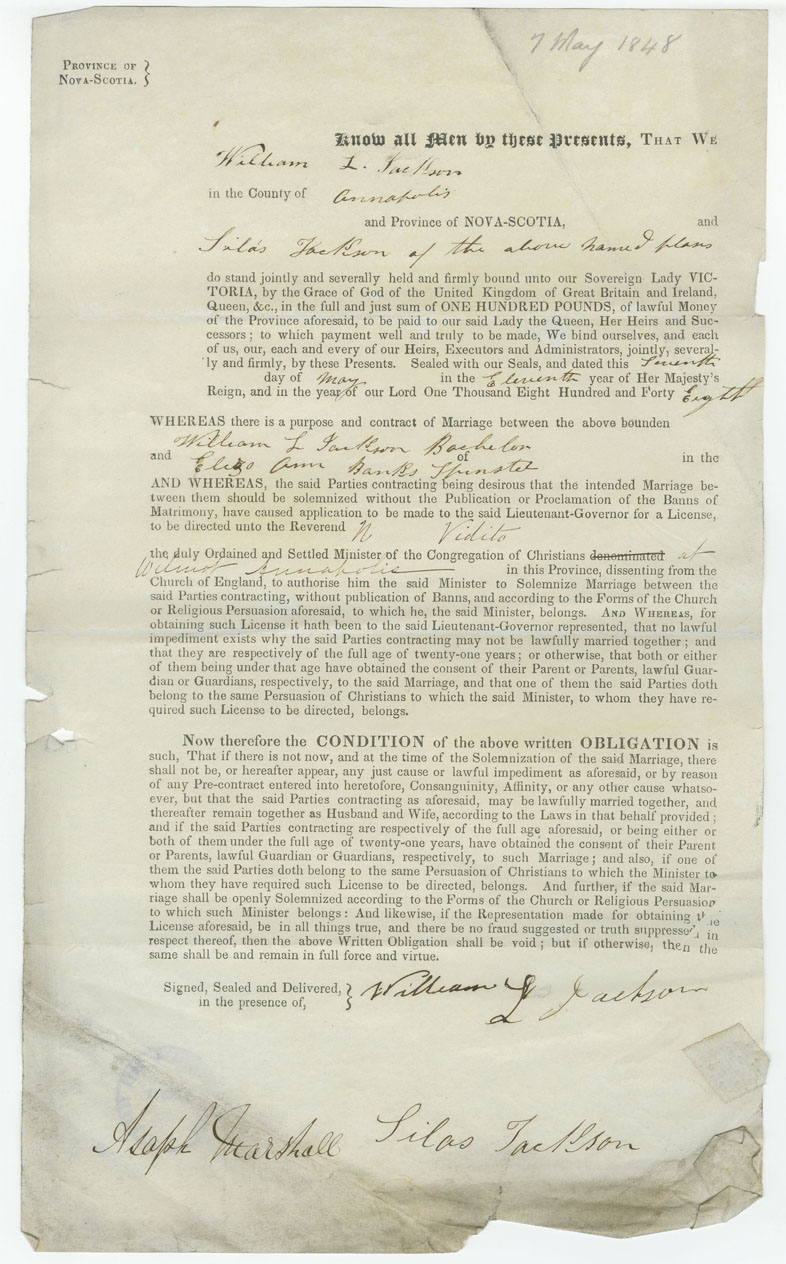 7 May 1848
PROVINCE OF
NOVA-SCOTIA. }
Know all Men by these Presents, THAT WE
William L. Jackson
in the County of Annapolis
and Province of NOVA-SCOTIA, and
Silas Jackson of the above named place
do stand jointly and severally held and firmly bound unto our Sovereign Lady VIC-
TORIA, by the Grace of God of the United Kingdom of Great Britain and Ireland,
Queen, &c., in the full and just sum of ONE HUNDRED POUNDS, of lawful Money
of the Province aforesaid, to be paid to our said Lady the Queen, Her Heirs and Suc-
cessors; to which payment well and truly to be made, We bind ourselves, and each
of us, our, each and every of our Heirs, Executors and Administrators, jointly, several-
ly and firmly, by these Presents. Sealed with our Seals, and dated this Seventh
day of May in the Eleventh year of Her Majesty's
Reign, and in the year of our Lord One Thousand Eight Hundred and Forty Eight
WHEREAS there is a purpose and contract of Marriage between the above bounden
William L Jackson Bachelor
and Eliza Ann Banks Spinster of in the
AND WHEREAS, the said Parties contracting being desirous that the intended Marriage be-
tween them should be solemnized without the Publication or Proclamation of the Banns of
Matrimony, have caused application to be made to the said Lieutenant-Governor for a License,
to be directed unto the Reverend N Vidito
the duly Ordained and Settled Minister of the Congregation of Christians denominated at
Wilmot Annapolis in this Province, dissenting from the
Church of England, to authorise him the said Minister to Solemnize Marriage between the
said Parties contracting, without publication of Banns, and according to the Forms of the Church
or Religious Persuasion aforesaid, to which he, the said Minister, belongs. AND WHEREAS, for
obtaining such License it hath been to the said Lieutenant-Governor represented, that no lawful
impediment exists why the said Parties contracting may not be lawfully married together; and
that they are respectively of the full age of twenty-one years; or otherwise, that both or either
of them being under that age have obtained the consent of their Parent or Parents, lawful Guar-
dian or Guardians, respectively, to the said Marriage, and that one of them the said Parties doth
belong to the same Persuasion of Christians to which the said Minister, to whom they have re-
quired such License to be directed, belongs.
Now therefore the CONDITION of the above written OBLIGATION is
such, That if there is not now, and at the time of the Solemnization of the said Marriage, there
shall not be, or hereafter appear, any just cause or lawful impediment as aforesaid, or by reason
of any Pre-contract entered into heretofore, Consanguinity, Affinity, or any other cause whatso-
ever, but that the said Parties contracting as aforesaid, may be lawfully married together, and
thereafter remain together as Husband and Wife, according to the Laws in that behalf provided;
and if the said Parties contracting are respectively of the full age aforesaid, or being either or
both of them under the full age of twenty-one years, have obtained the consent of their Parent
or Parents, lawful Guardian or Guardians, respectively, to such Marriage; and also, if one of
them the said Parties doth belong to the same Persuasion of Christians to which the Minister to
whom they have required such License to be directed, belongs. And further, if the said Mar-
riage shall be openly Solemnized according to the Forms of the Church or Religious Persuasion
to which such Minister belongs: And likewise, if the Representation made for obtaining the
License aforesaid, be in all things true, and there be no fraud suggested or truth suppressed, in
respect thereof, then the above Written Obligation shall be void; but if otherwise, then the
same shall and remain in full force and virtue.
Signed, Sealed and Delivered, }
in the presence of,
William L Jackson
Asaph Marshall
Silas Jackson